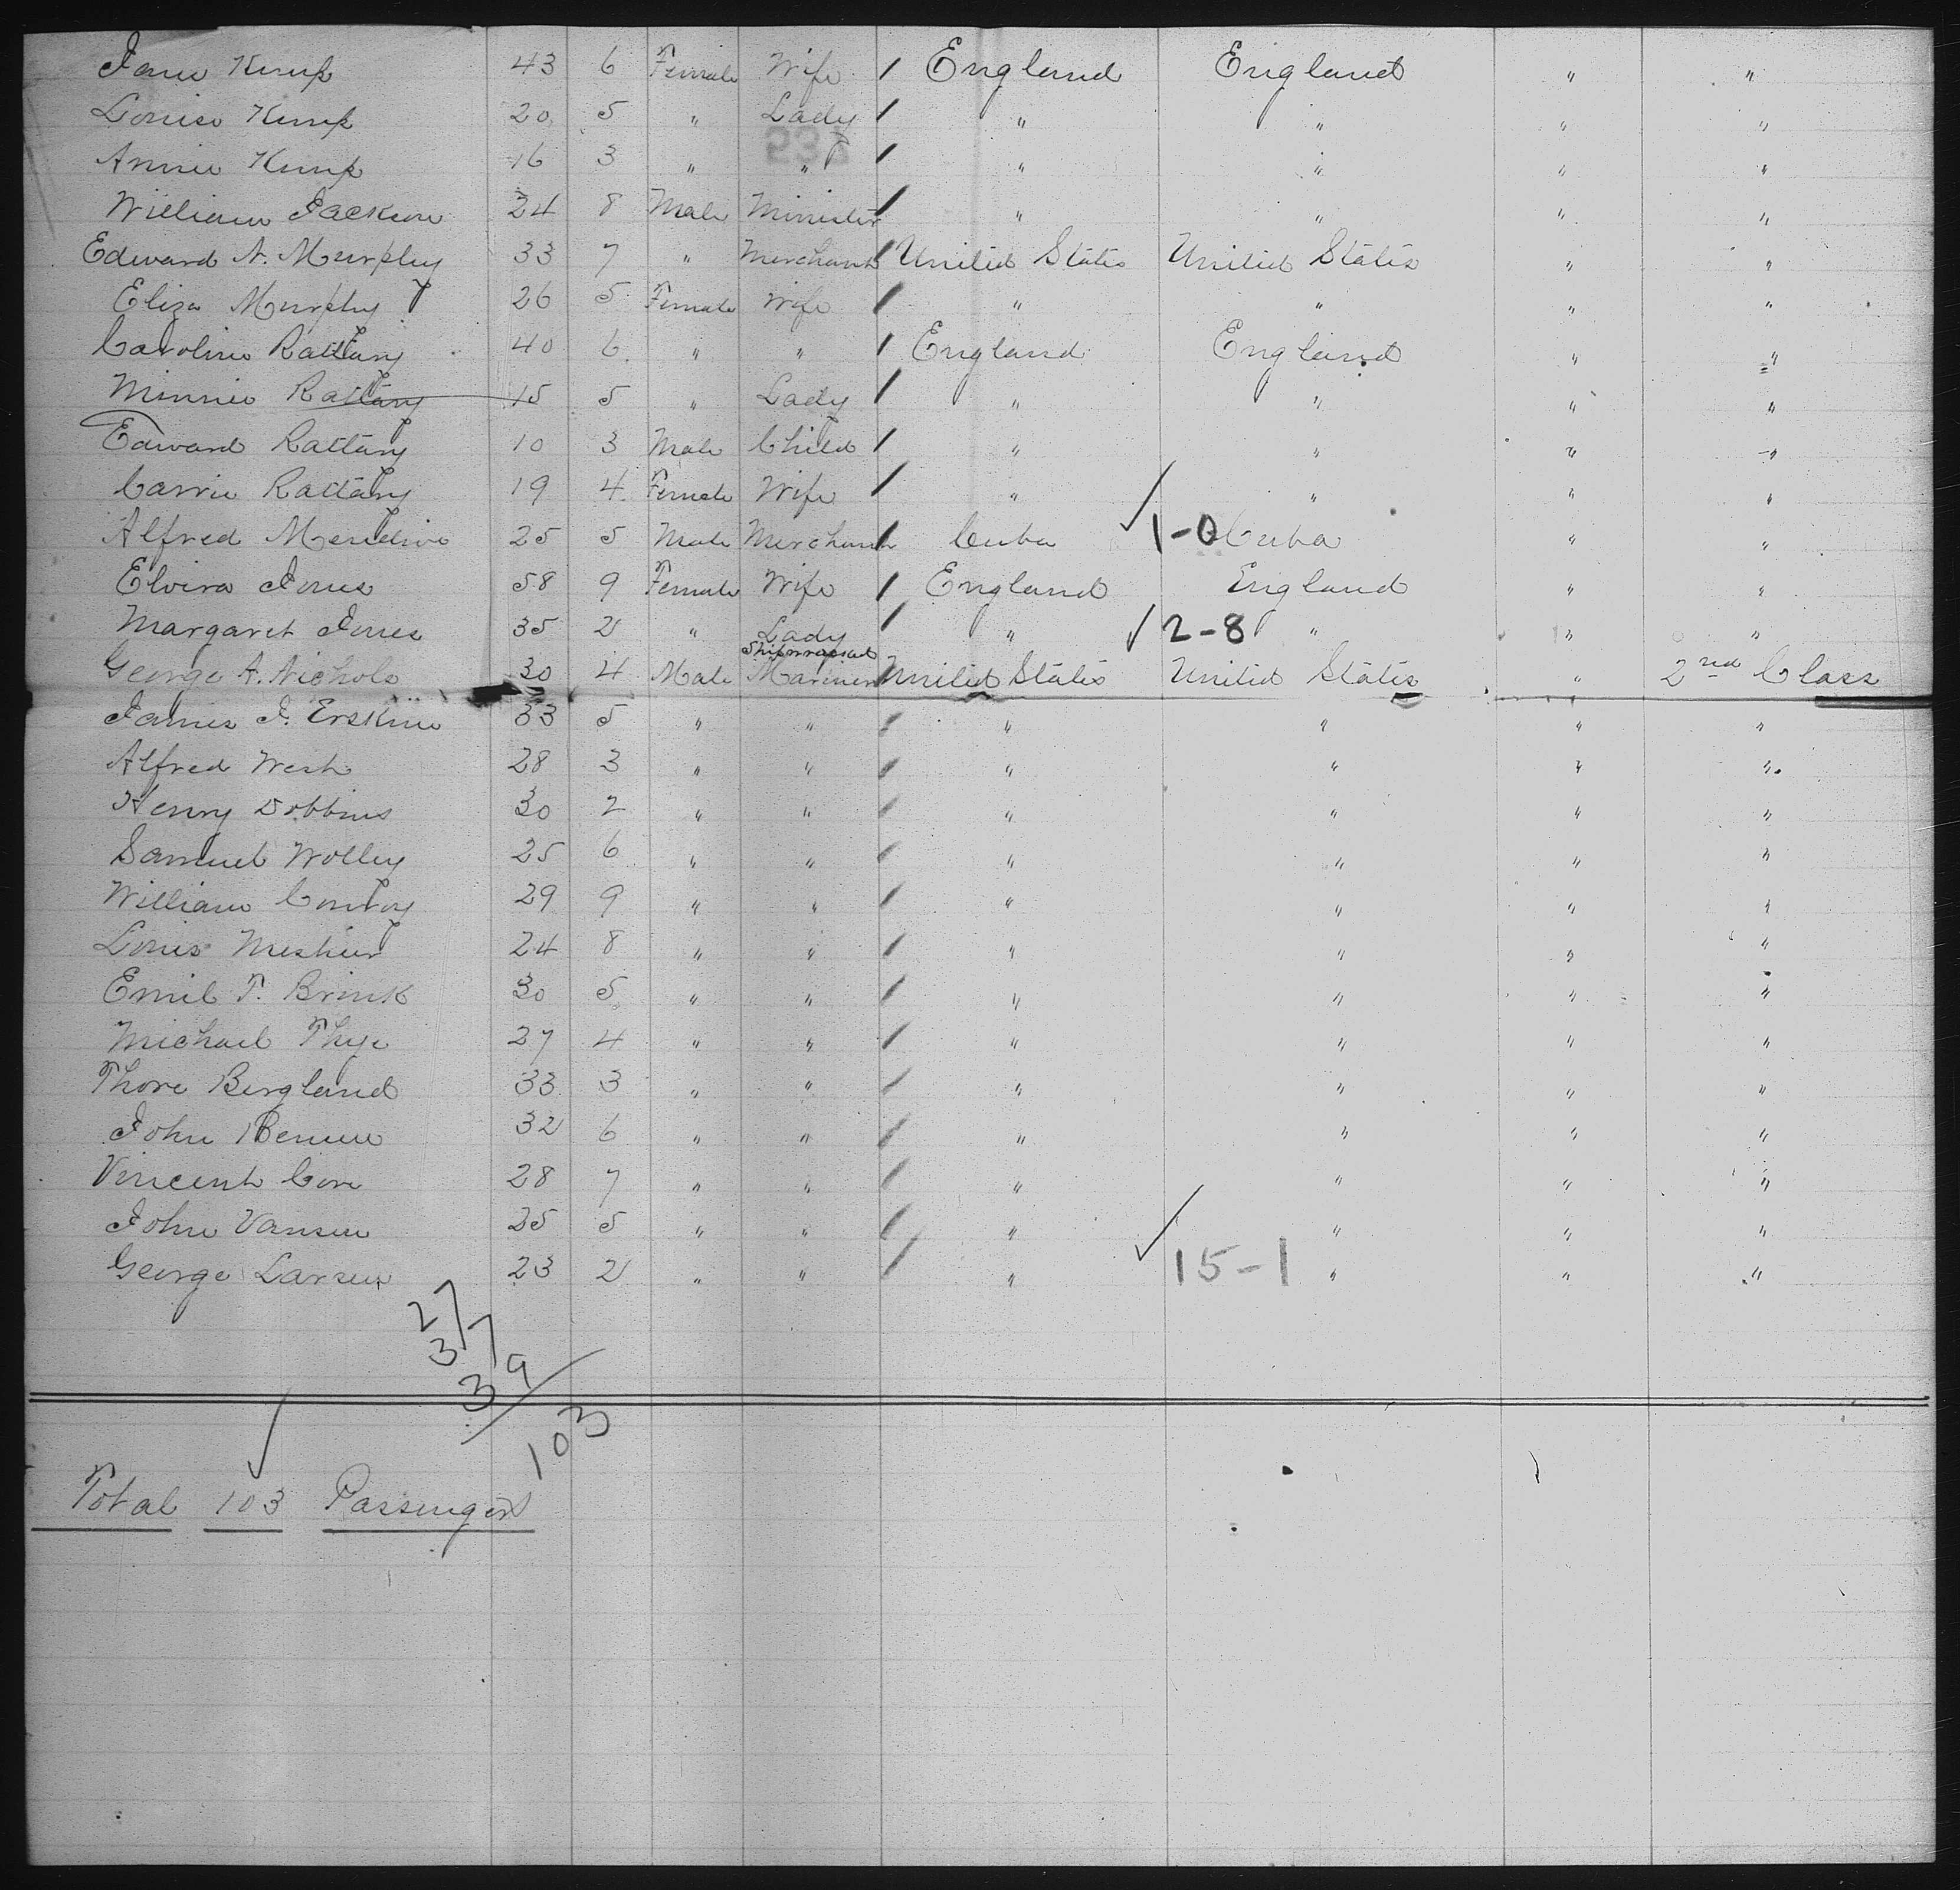 Jane Kemp 43 6 Female Wife / England England " "
Louise Kemp 20 5 " Lady / " " " "
Annie Kemp 16 3 " " / " " " "
William Jackson 24 8 Male Minister / " " " "
Edward A. Murphy 33 7 " Merchant / United States United States " "
Eliza Murphy 26 5 Female Wife / " " " "
Caroline Rattary 40 6 " " / England England " "
Minnie Rattary 15 5 " Lady / " " " "
Edward Rattary 10 3 Male Child / " " " "
Carrie Rattary 19 4 Female Wife / " ✓ " " "
Alfred 25 5 Male Merchant / Cuba 1-0 Cuba " "
Elvira Jones 58 9 Female Wife / England England " "
Margaret Jones 35 2 " Lady / " ✓ 2-8 " " "
George A. Nichols 30 4 Male Shipwrecked Mariner United States United States " 2nd Class
James J. Erskine 33 5 " " / " " " "
Alfred West 28 3 " " / " " " "
Henry Dobbins 30 2 " " / " " " "
Samuel Wolley 25 6 " " / " " " "
William Conroy 29 9 " " / " " " "
Louis 24 8 " " / " " " "
Emil T. Brink 30 5 " " / " " " "
Michael Thye 27 4 " " / " " " "
Thore Bergland 33 3 " " / " " " "
John 32 6 " " / " " " "
Vincent Core 28 7 " " / " " " "
John Vansen 25 5 " " / " ✓ " " "
George Larsen 23 2 " " / " 15-1 " " "
27
37
39
103
Total 103 Passengers